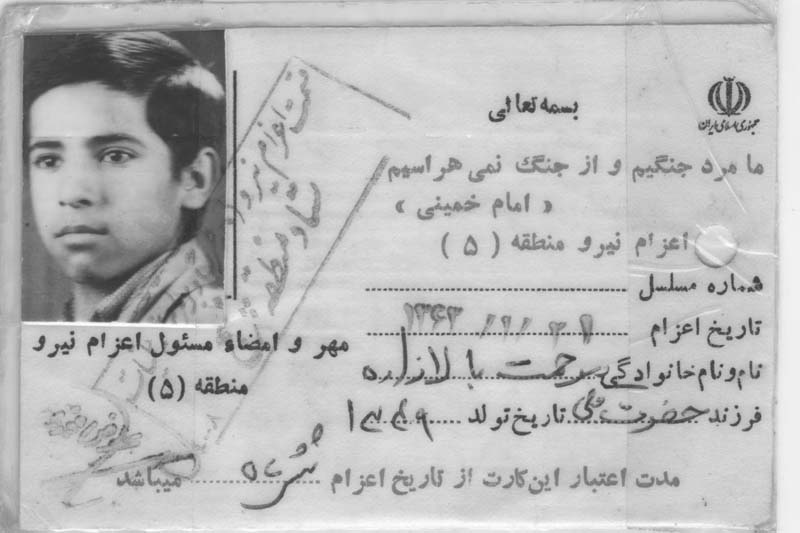 بسمه تعالی
جمهوری اسلامی ایران
ما مرد جنگیم و از جنگ نمی هراسیم
« امام خمینی »
اعزام نیرو منطقه ( ۵ )
شماره مسلسل
تاریخ اعزام ۱۳۶۲
نام و نام خانوادگی رحمت بالازاده
فرزند حضرت قلی تاریخ تولد ۱۳۴۹
مدت اعتبار این کارت از تاریخ اعزام میباشد
مهر و امضاء مسئول اعزام نیرو
منطقه (۵)
اعزام نیرو
ستاد منطقه